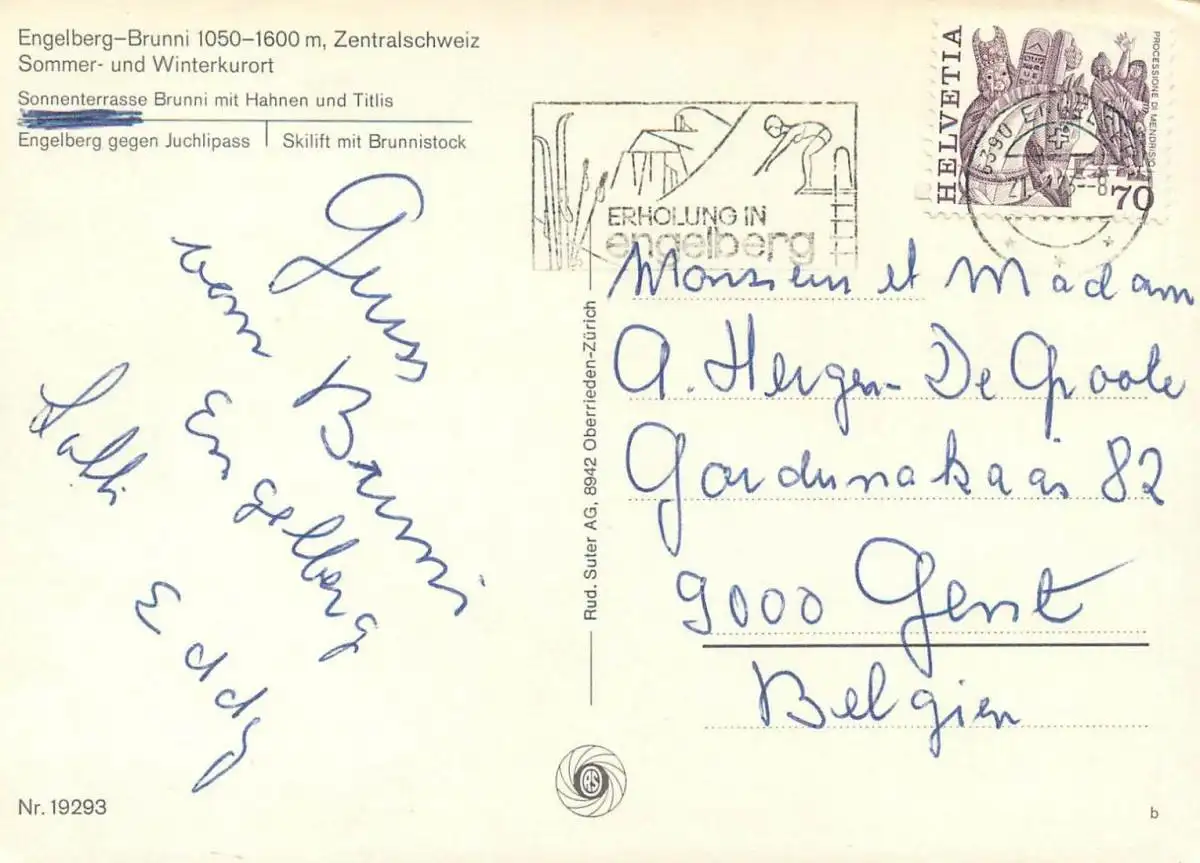 Engelberg–Brunni 1050–1600 m, Zentralschweiz
Sommer- und Winterkurort
Sonnenterrasse Brunni mit Hahnen und Titlis
Engelberg gegen Juchlipass
Skilift mit Brunnistock
ERHOLUNG IN
engelberg
HELVETIA
PROCESSIONE DI MENDRISIO
70
6390 ENGELBERG
Gruss
vom Brunni
Engelberg
Eddy
Rud. Suter AG, 8942 Oberrieden-Zürich
Monsieur et Madam
A. Hergen - De Groote
82
9000 Gent
Belgien
Nr. 19293
b